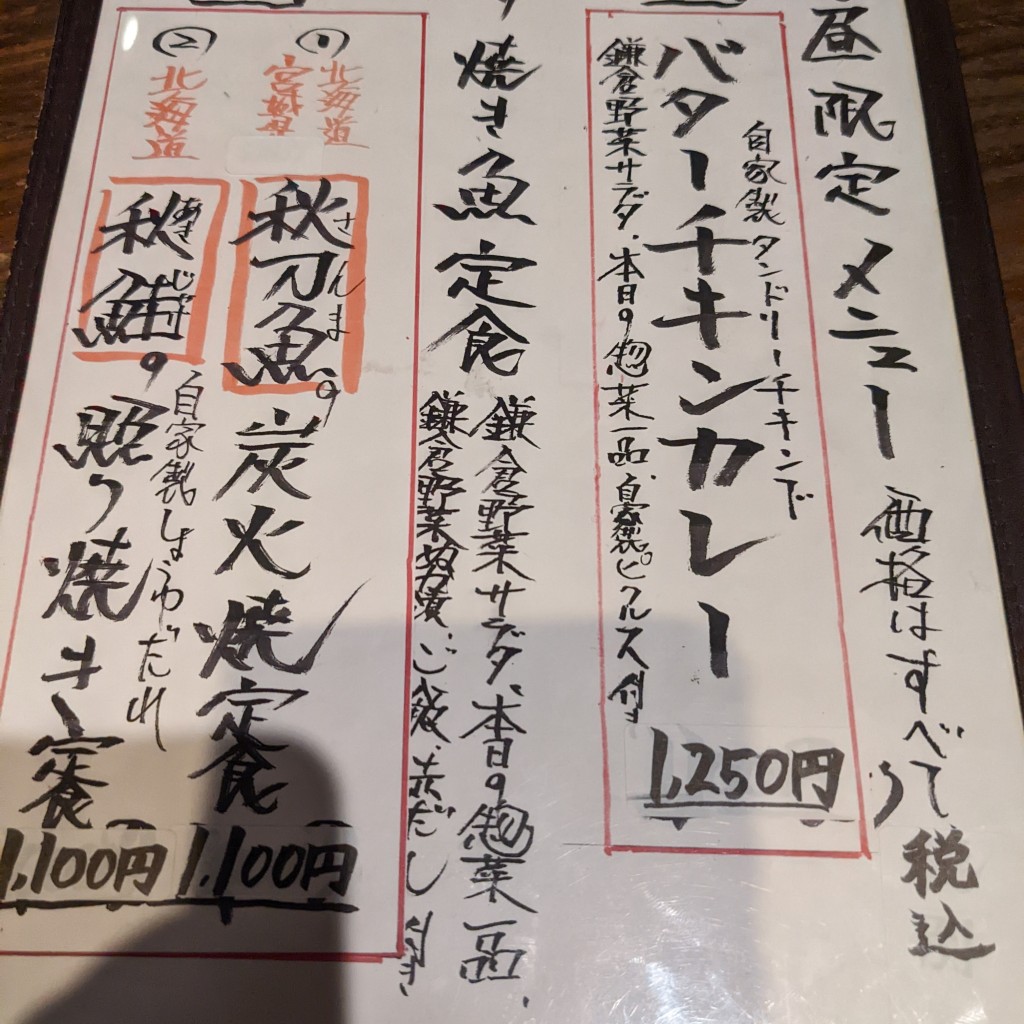 昼限定メニュー
価格はすべて税込
自家製タンドリーチキンド
バターチキンカレー
1,250円
鎌倉野菜サラダ、本日の惣菜一品、自家製ピクルス付
焼き魚定食
鎌倉野菜サラダ、本日の惣菜一品、
鎌倉野菜ぬか漬、ご飯、赤だし付き
①
北海道
宮城県
さんま
秋刀魚の炭火焼定食
1,100円
②
北海道
あきじゃけ
秋鮭の照り焼き定食
自家製しょうゆだれ
1,100円